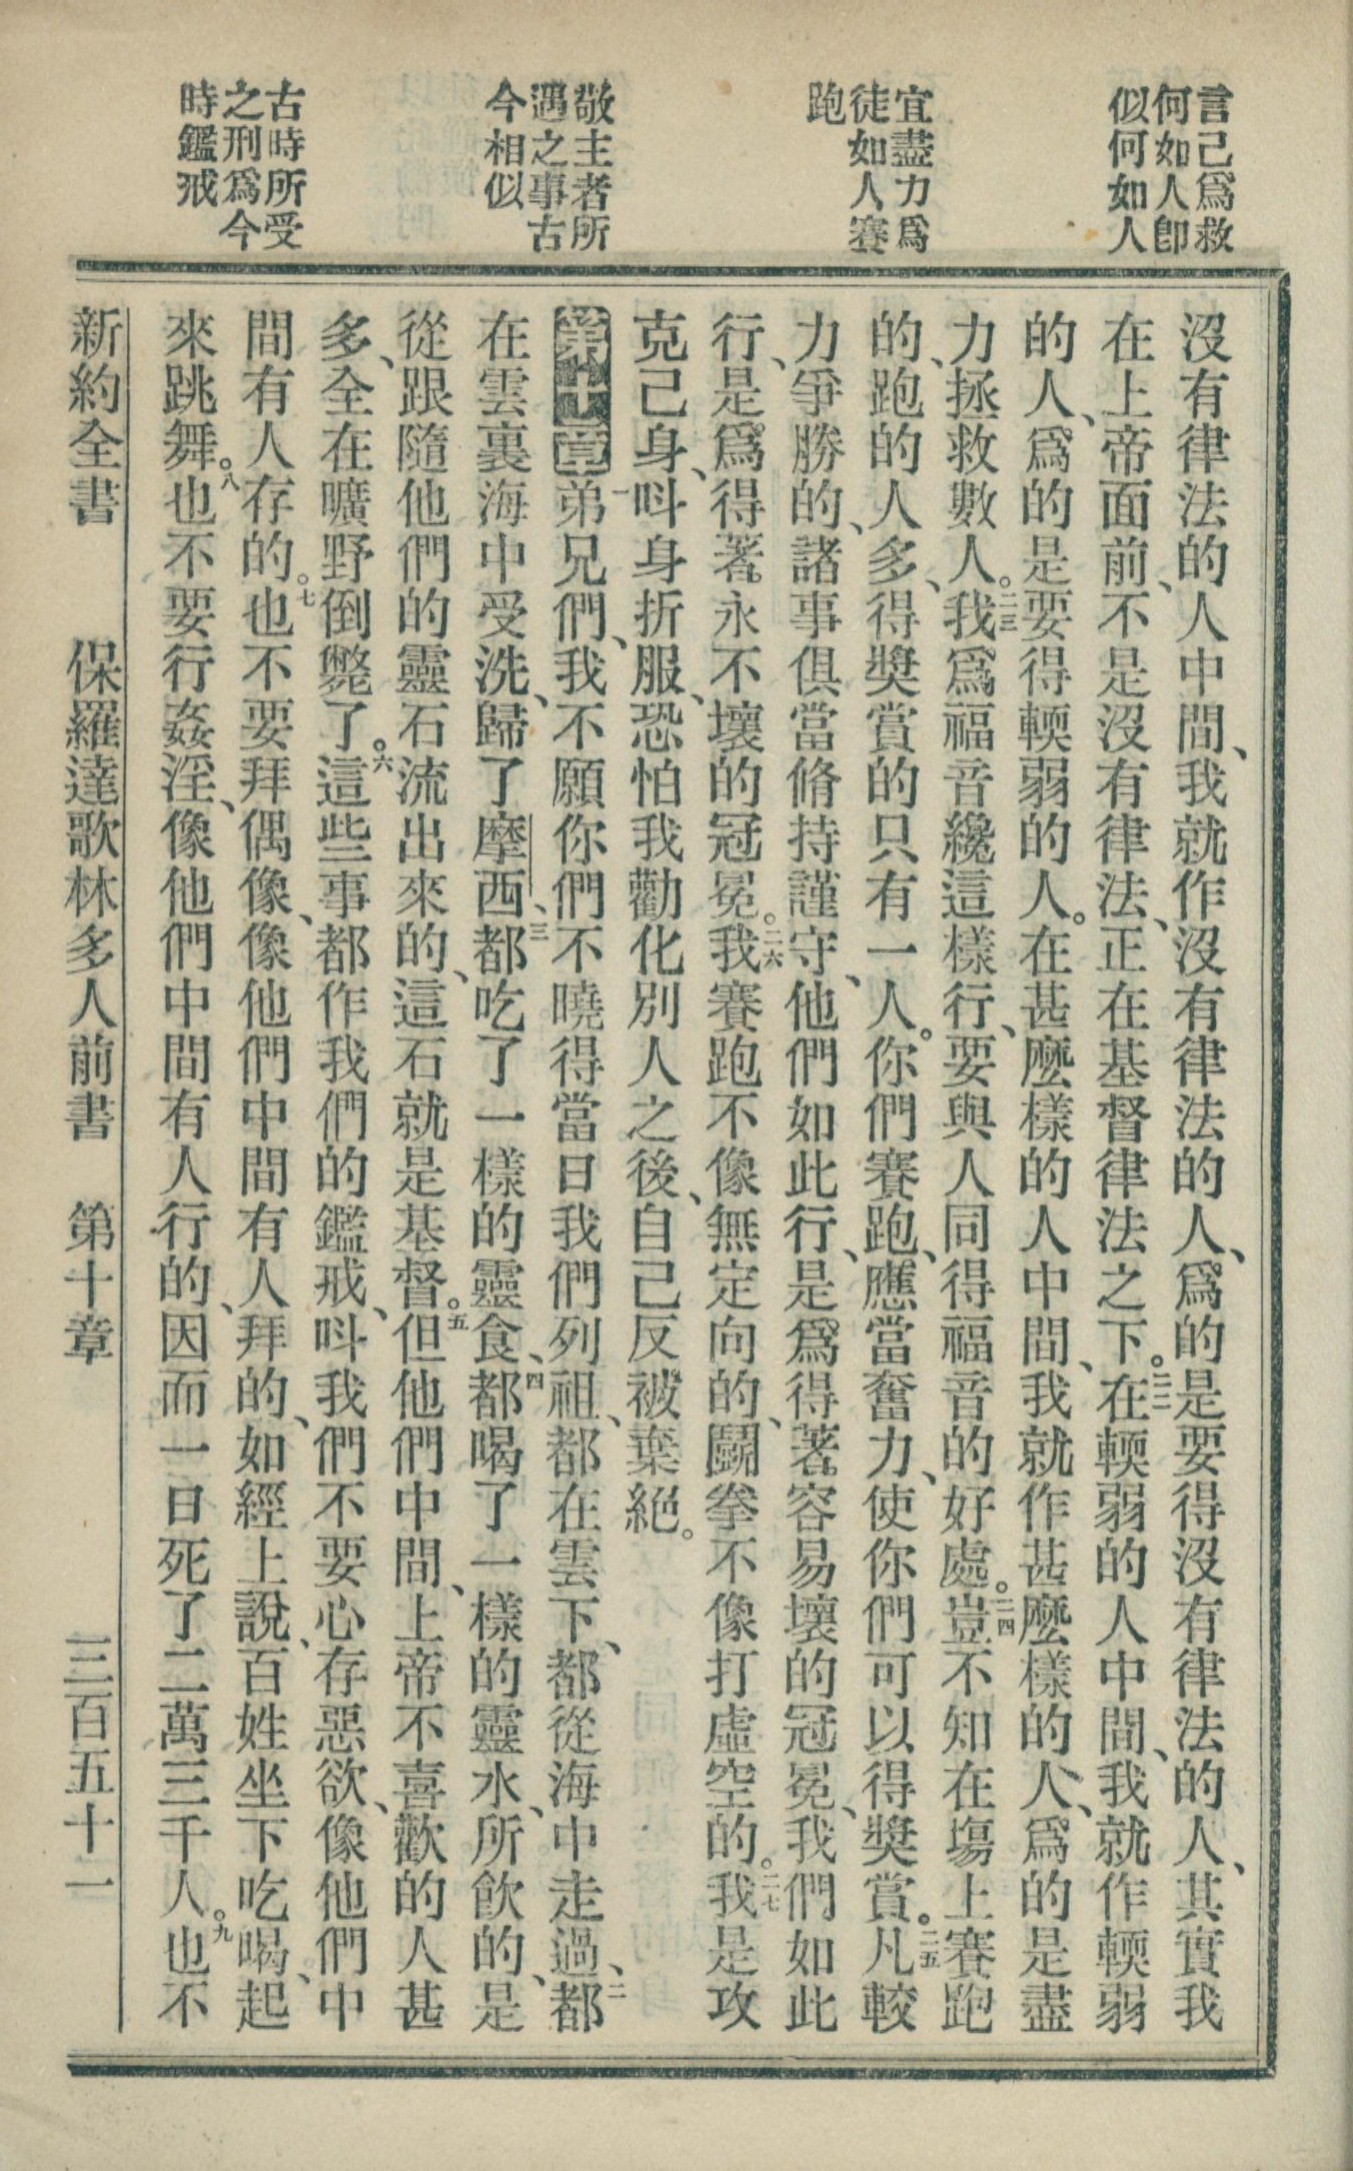 言己爲救
何如人卽
似何如人
宜盡力爲
徒如人賽
跑
敬主者所
遇之事古
今相似
古時所受
之刑爲今
時鑑戒
沒有律法的人中間、我就作沒有律法的人、爲的是要得沒有律法的人、其實我
在上帝面前、不是沒有律法、正在基督律法之下。二二在輭弱的人中間、我就作輭弱
的人、爲的是要得輭弱的人。在甚麼樣的人中間、我就作甚麼樣的人、爲的是盡
力拯救數人。二三我爲福音纔這樣行、要與人同得福音的好處。二四豈不知在場上賽跑
的、跑的人多、得奬賞的只有一人。你們賽跑、應當奮力、使你們可以得奬賞。二五凡較
力爭勝的、諸事俱當脩持謹守、他們如此行、是爲得著容易壞的冠冕、我們如此
行、是爲得著永不壞的冠冕。二六我賽跑不像無定向的、鬬拳不像打虛空的。二七我是攻
克己身、呌身折服、恐怕我勸化別人之後、自己反被棄絕。
第十章一弟兄們、我不願你們不曉得當日我們列祖、都在雲下、都從海中走過、二都
在雲裏海中受洗、歸了摩西、三都吃了一樣的靈食、四都喝了一樣的靈水、所飲的、是
從跟隨他們的靈石流出來的、這石就是基督。五但他們中間、上帝不喜歡的人甚
多、全在曠野倒斃了。六這些事都作我們的鑑戒、呌我們不要心存惡欲、像他們中
間有人存的。七也不要拜偶像、像他們中間有人拜的、如經上說、百姓坐下吃喝、起
來跳舞。八也不要行姦淫、像他們中間有人行的、因而一日死了二萬三千人。九也不
新約全書 保羅達歌林多人前書 第十章 三百五十一